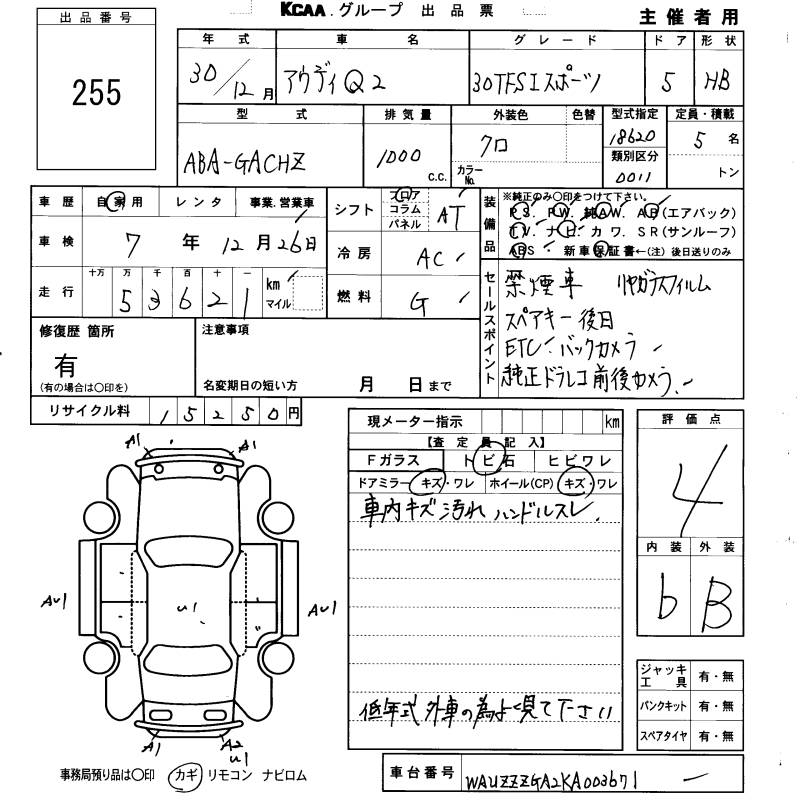 KCAA.グループ 出品票
主催者用
出品番号
255
年式 車名 グレード ドア 形状
30/12月 アウディQ2 30TFSIスポーツ 5 HB
型式 排気量 外装色 色替 型式指定 定員・積載
ABA-GACHZ 1000 C.C. クロ 18620 5 名
カラーNo. 類別区分 トン
0011
車歴 自家用 レンタ 事業.営業車
車検 7年12月26日
走行 十万 万 千 百 十 一
5 3 6 2 1 km マイル
シフト フロア コラム パネル AT
冷房 AC
燃料 G
装備品 ※純正のみ〇印をつけて下さい。
PS. PW. 純AW. AB(エアバック)
TV. ナビ. カワ. SR(サンルーフ)
ABS ・ 新車保証書←(注) 後日送りのみ
セールスポイント
禁煙車 リヤガラスフィルム
スペアキー後日
ETC バックカメラ
純正ドラレコ前後カメラ
修復歴 箇所
有
(有の場合は〇印を)
注意事項
名変期日の短い方 月 日まで
リサイクル料 15250円
現メーター指示 km
【査定員記入】
Fガラス トビ石 ヒビワレ
ドアミラー キズ・ワレ ホイール(CP) キズ・ワレ
車内キズ汚れ ハンドルスレ
低年式外車の為よく見て下さい
評価点
4
内装 外装
b B
A1 A1
AU1 U1 AU1
A1 A2
U1
ジャッキ工具 有・無
パンクキット 有・無
スペアタイヤ 有・無
事務局預り品は〇印 カギ リモコン ナビロム
車台番号 WAUZZZGA2KA003671